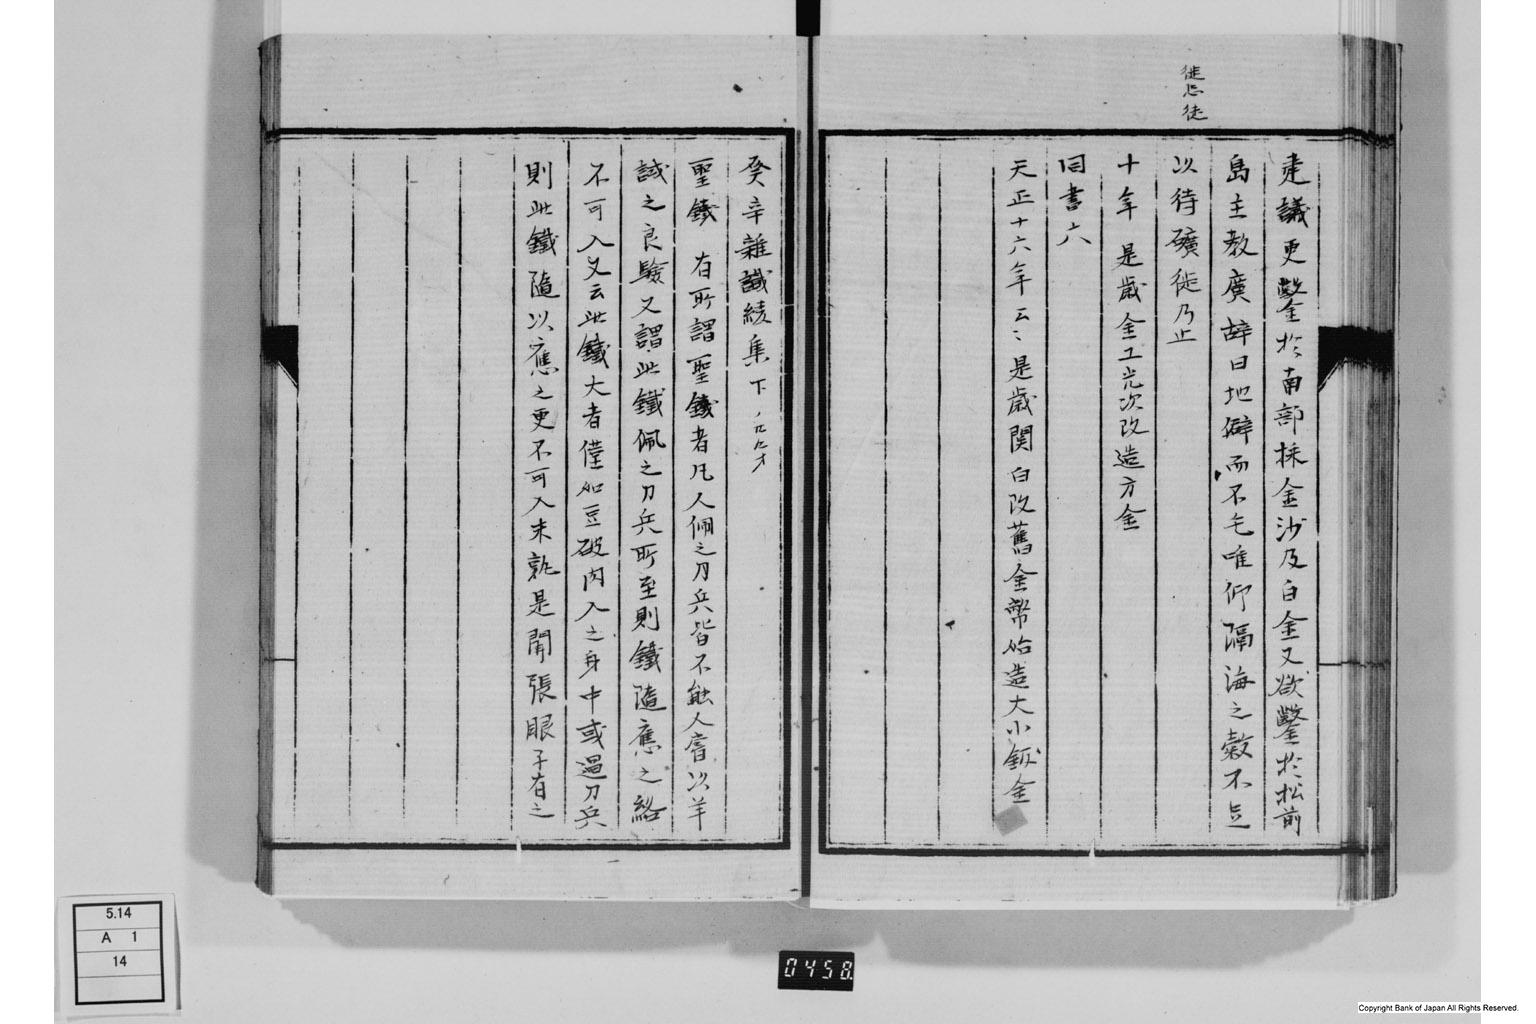 徙恐徒
建議更鑿於南部採金沙及白金又欲鑿於松前
島主教廣辞曰地僻而不毛唯仰隔海之穀不足
以待礦徙乃止
十年 是歳金工光次改造方金
同書六
天正十六年云〻是歳関白改舊金幣始造大小鈑金
癸辛雜識續集下
聖鐵 有所謂聖鐵者凡人佩之刀兵皆不能人嘗以羊
試之良驗又謂此鐵佩之刀兵所至則鐵隨應之
不可入又云此鐵大者僅如豆破肉入之身中或遇刀兵
則此鐵隨以應之更不可入未孰是開張眼子有之
5.14
A 1
14
0458
Copyright Bank of Japan All Rights Reserved.